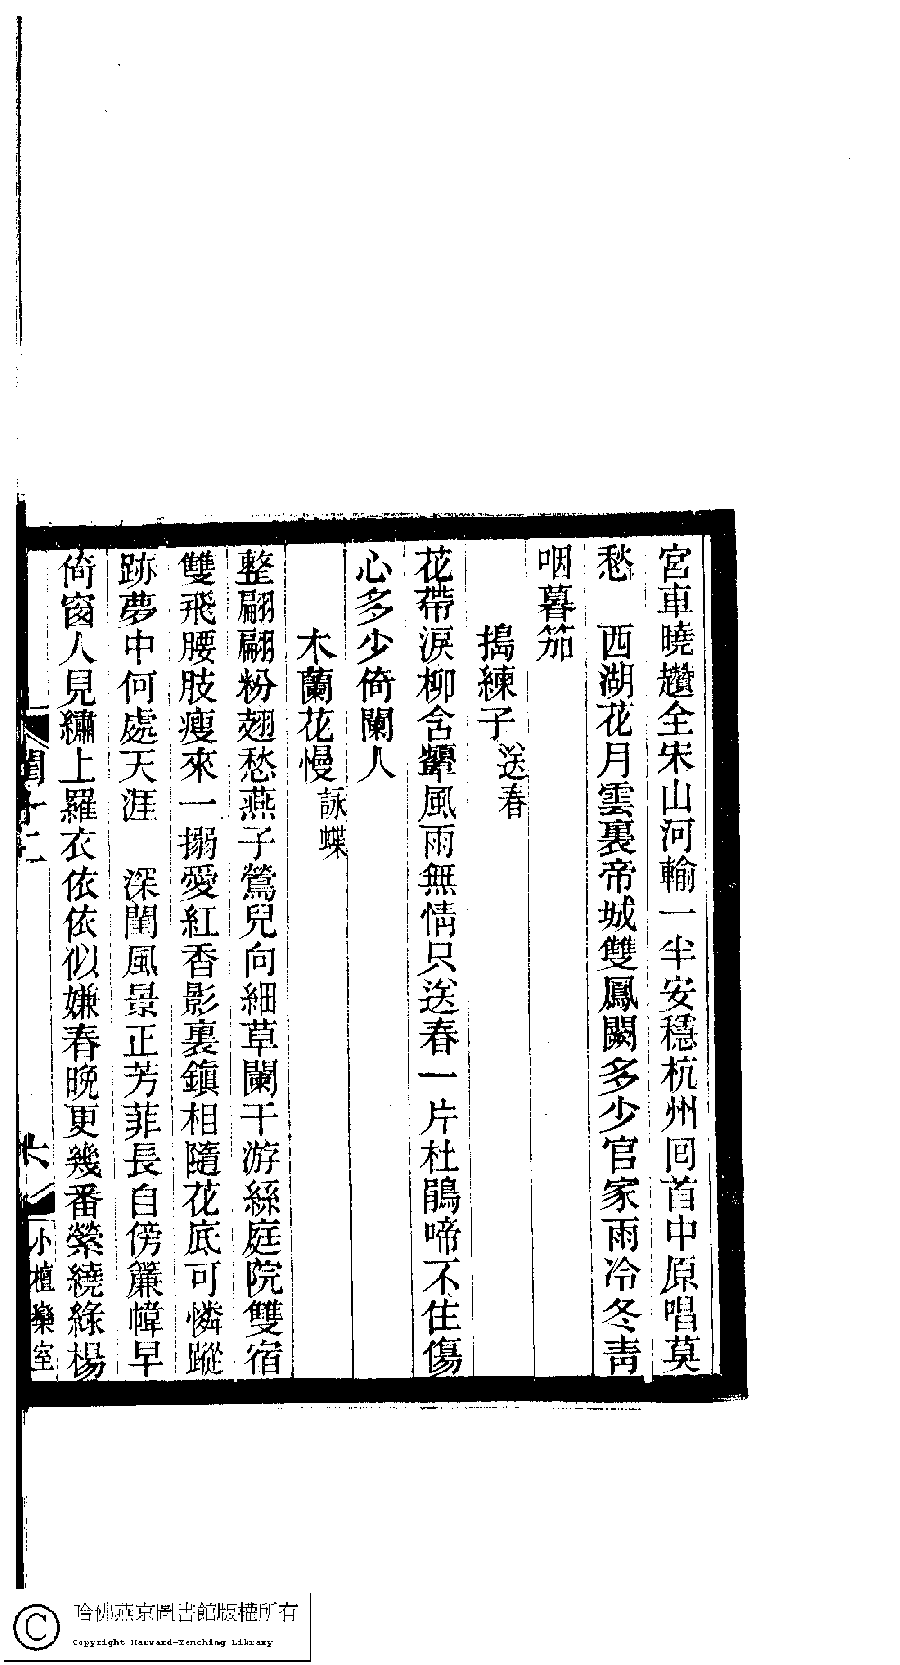 宮車曉趲全宋山河輸一半安穩杭州回首中原唱莫
愁　西湖花月雲裏帝城雙鳳闕多少官家雨冷冬靑
咽暮笳
搗練子送春
花帶淚柳含顰風雨無情只送春一片杜鵑啼不住傷
心多少倚闌人
木蘭花慢詠蝶
整翩翩粉翅愁燕子鶯兒向細草闌干游絲庭院雙宿
雙飛腰肢瘦來一搦愛紅香影裏鎮相隨花底可憐蹤
跡夢中何處天涯　深閨風景正芳菲長自傍簾幃早
倚窗人見繡上羅衣依依似嫌春晚更幾番縈繞綠楊
小檀欒室
哈佛燕京圖書館版權所有
Copyright Harvard-Yenching Library